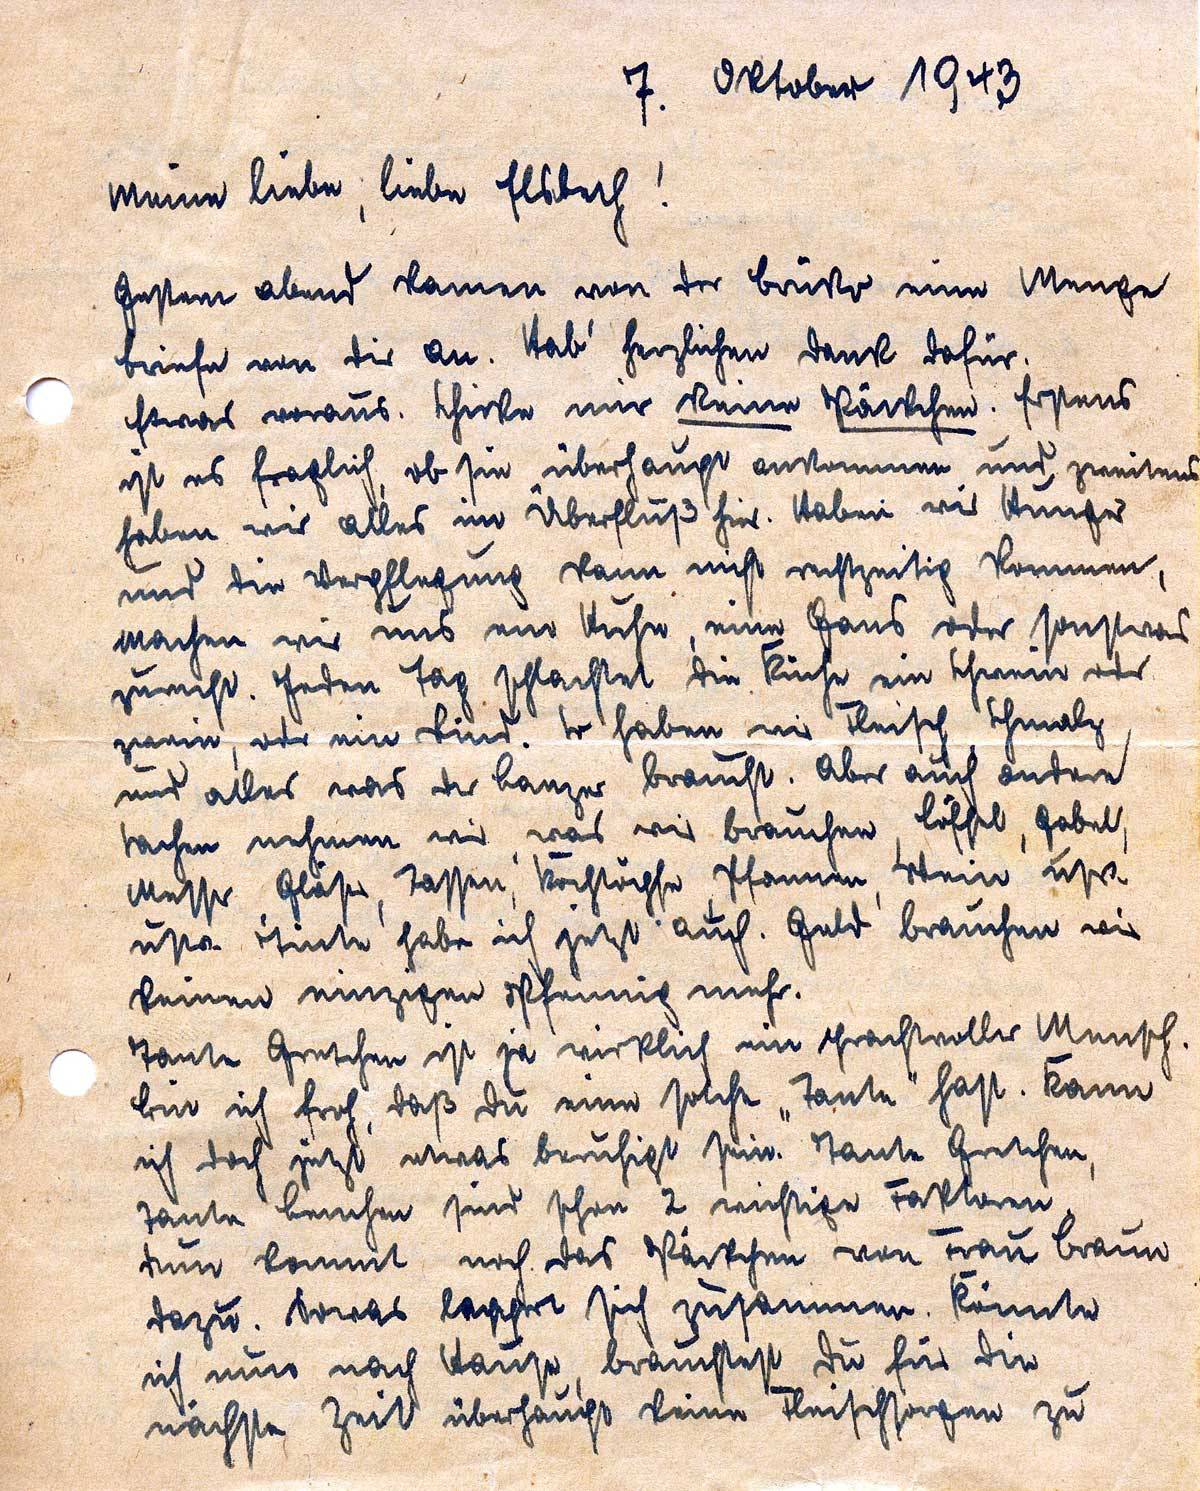 7. Oktober 1943
Meine liebe, liebe Elsbeth!
Gestern abend kamen von der Brücke eine Menge
Briefe von dir an. Hab' herzlichen Dank dafür.
Etwas voraus. Schicke mir keine Päckchen. Erstens
ist es fraglich, ob sie überhaupt ankommen und zweitens
haben wir alles im Überfluß hier. Haben wir Hunger
und die Verpflegung kann nicht rechtzeitig kommen,
machen wir uns ein Huhn, eine Gans oder sonstwas
zurecht. Jeden Tag schlachtet die Küche ein Schwein oder
zwei, oder ein Rind. So haben wir Fleisch, Schmalz
und alles was der Lanzer braucht. Aber auch andere
Sachen nehmen wir, was wir brauchen, Löffel, Gabel,
Messer Gläser, Tassen, Kochtöpfe, Pfannen, Wein usw.
usw. Tinte habe ich jetzt auch. Geld brauchen wir
keinen einzigen Pfennig mehr.
Tante Gretchen ist ja wirklich ein prachtvoller Mensch.
Bin ich froh, daß du eine solche „Tante" hast. Kann
ich doch jetzt etwas beruhigt sein. Tante Gretchen,
Tante Lenchen sind schon 2 wichtige Faktoren.
Nun kommt noch das Päckchen von Frau Braun
dazu. Sowas läppert sich zusammen. Könnte
ich nun nach Hause, brauchtest du für die
nächste Zeit überhaupt keine Fleischsorgen zu